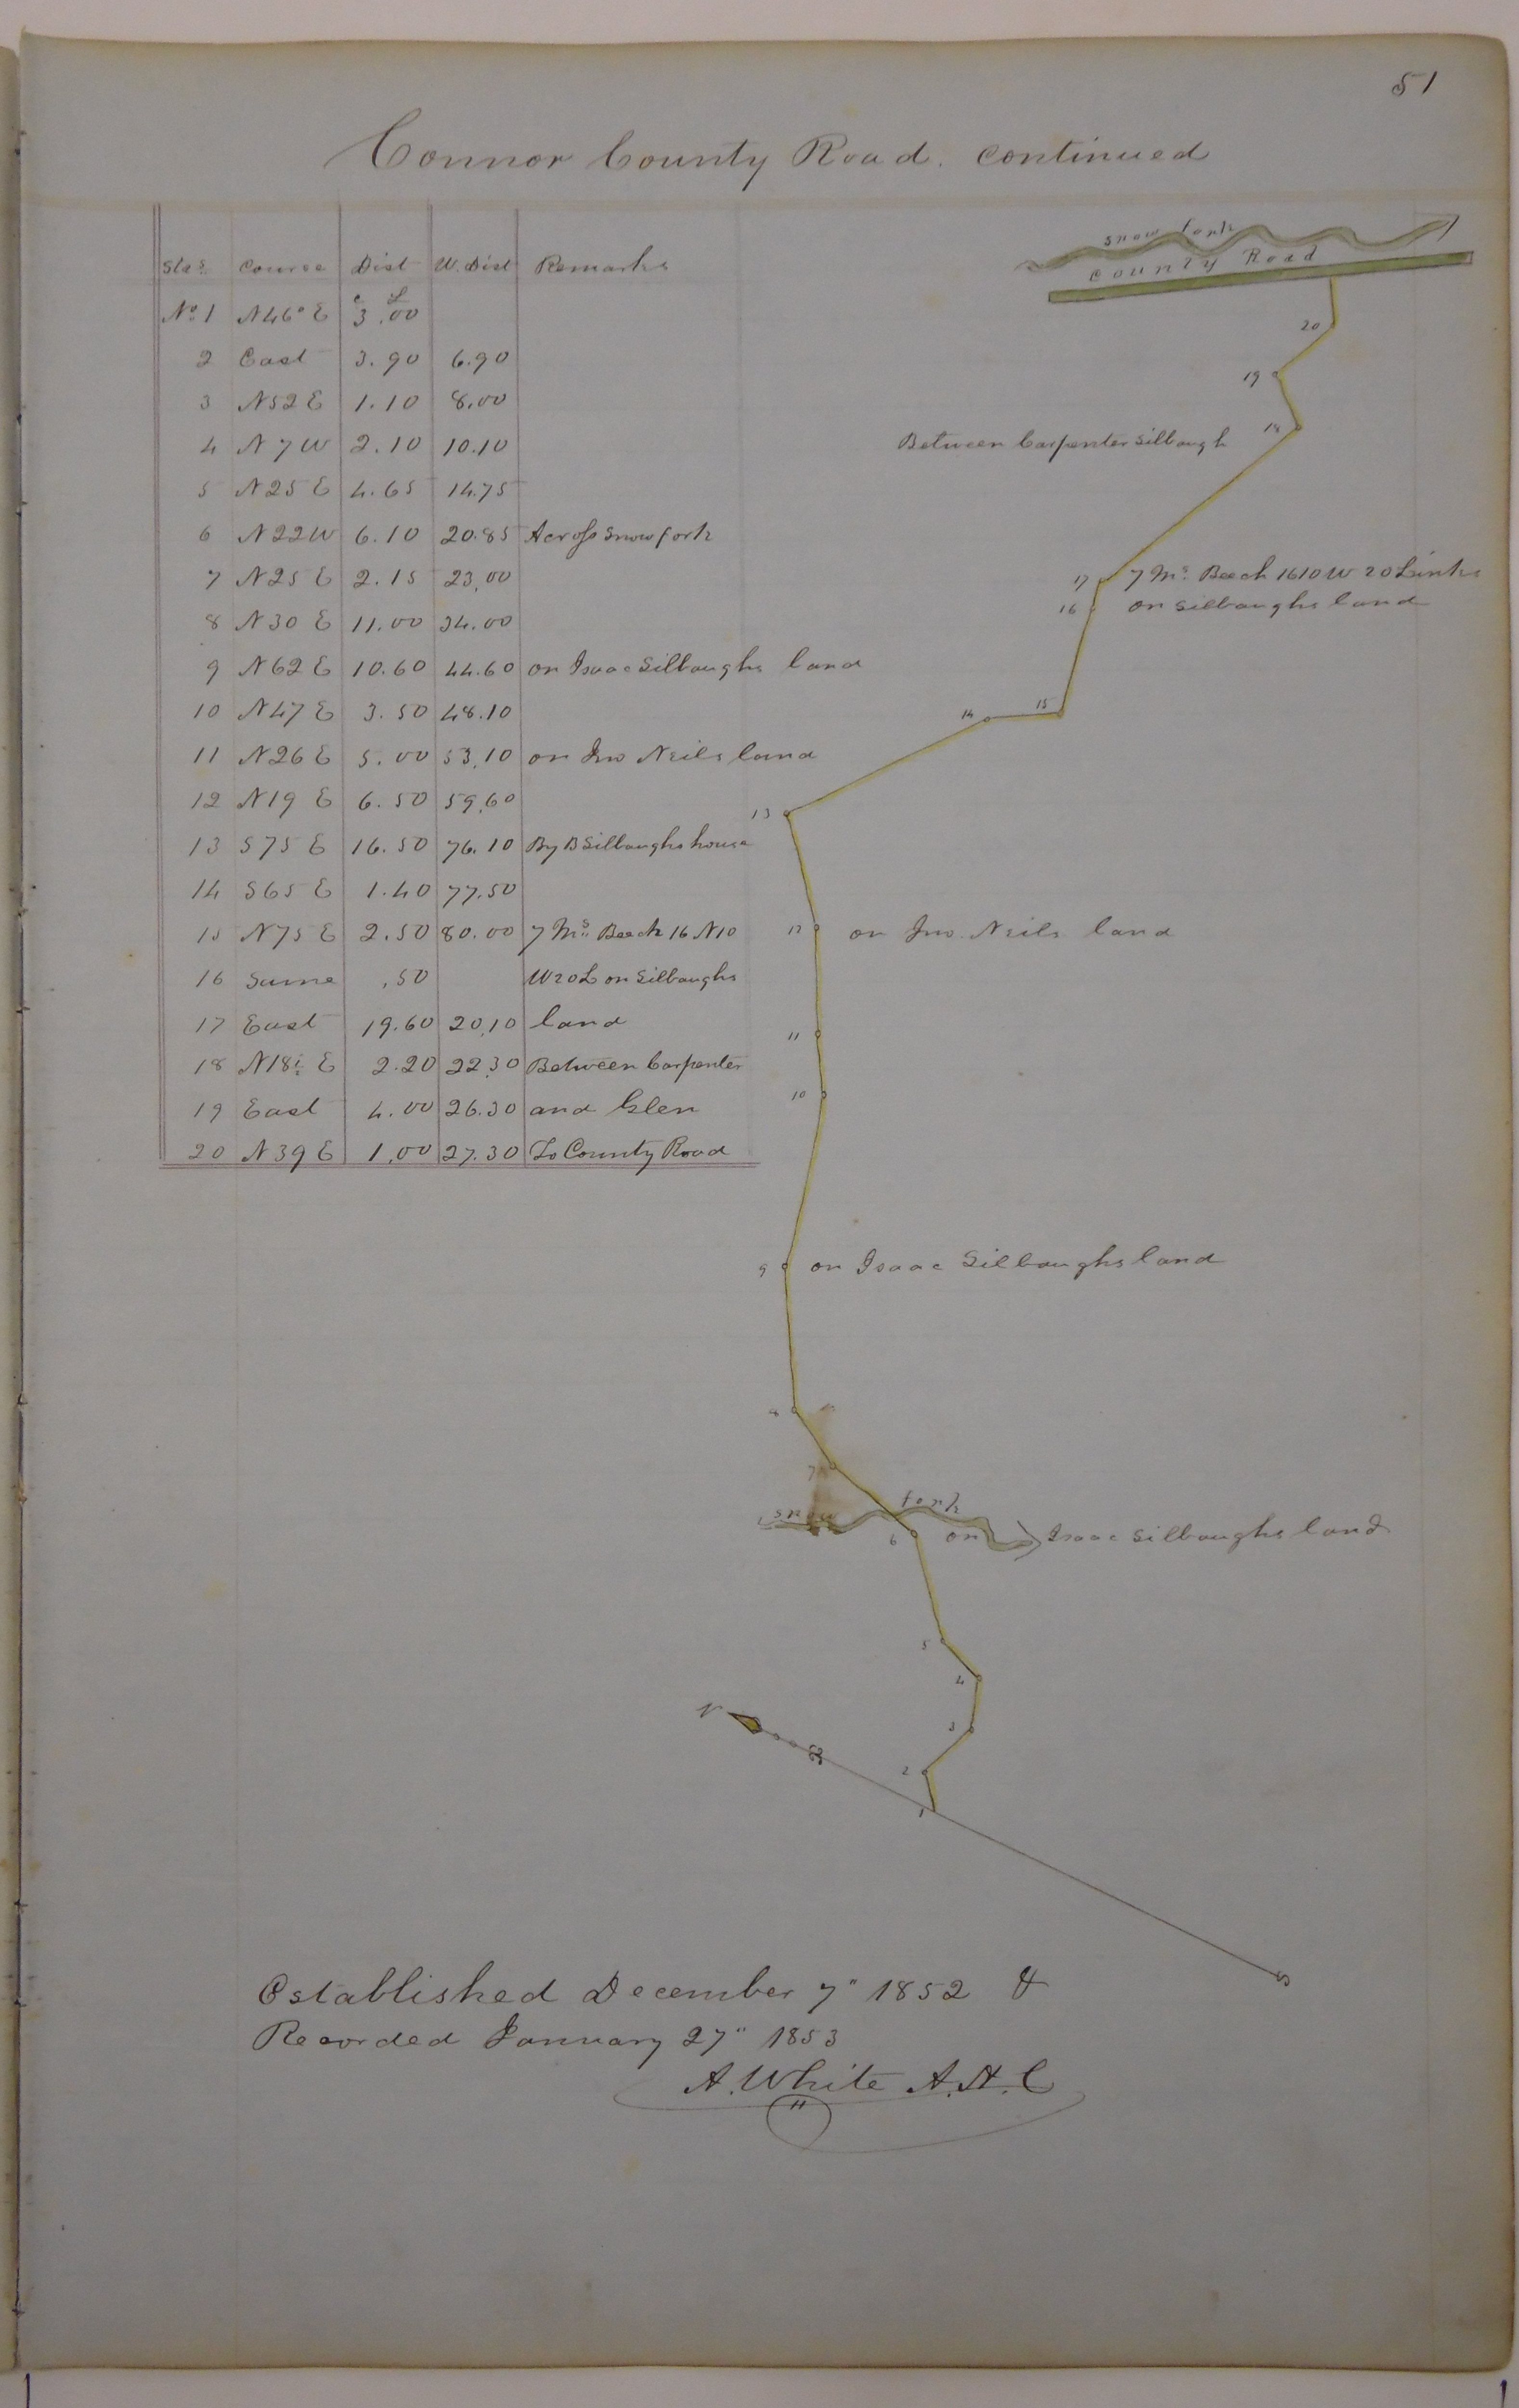 51
Connor County Road. continued
Stas. Course Dist W. Dist Remarks
C L
No 1 N46° E 3.00
2 East 3.90 6.90
3 N52 E 1.10 8.00
4 N 7 W 2.10 10.10
5 N25 E 4.65 14.75
6 N22W 6.10 20.85 Across Snow fork
7 N25 E 2.15 23.00
8 N30 E 11.00 34.00
9 N62 E 10.60 44.60 on Isaac Silbaughs land
10 N47 E 3.50 48.10
11 N26 E 5.00 53.10 on Jno Neils land
12 N19 E 6.50 59.60
13 S75 E 16.50 76.10 By B Silbaughs house
14 S65 E 1.40 77.50
15 N75 E 2.50 80.00 7 Ms. Beech 16 N10
16 Same .50 W20L on Silbaughs
17 East 19.60 20.10 land
18 N18½ E 2.20 22.30 Between Carpenter
19 East 4.00 26.30 and Glen
20 N39 E 1.00 27.30 To County Road
snow fork
County Road
20
19
18
Between Carpenter Silbaugh
17 7 Ms. Beech 16 10 W 20 Links
16 on Silbaughs land
15
14
13
12 on Jno. Neils land
11
10
9 on Isaac Silbaughs land
8
7
snow fork
6 on Isaac Silbaughs land
5
4
3
2
1
N
S
Established December 7" 1852 &
Recorded January 27" 1853
A. White A.A.C